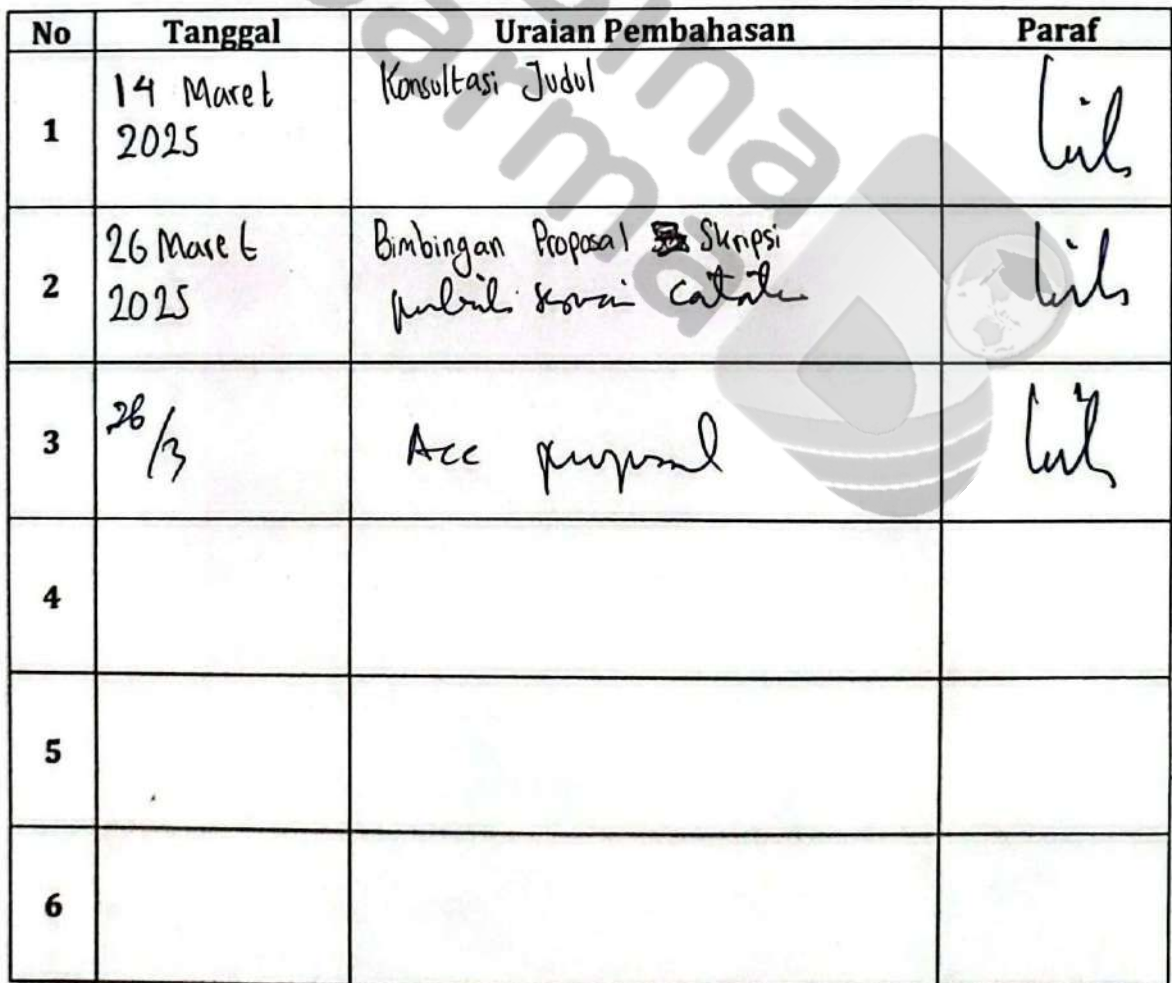 No Tanggal Uraian Pembahasan Paraf
1 14 Maret 2025 Konsultasi Judul
2 26 Maret 2025 Bimbingan Proposal Skripsi
perbaiki sesuai catatan
3 28/3 Acc proposal
4
5
6
bina
darma